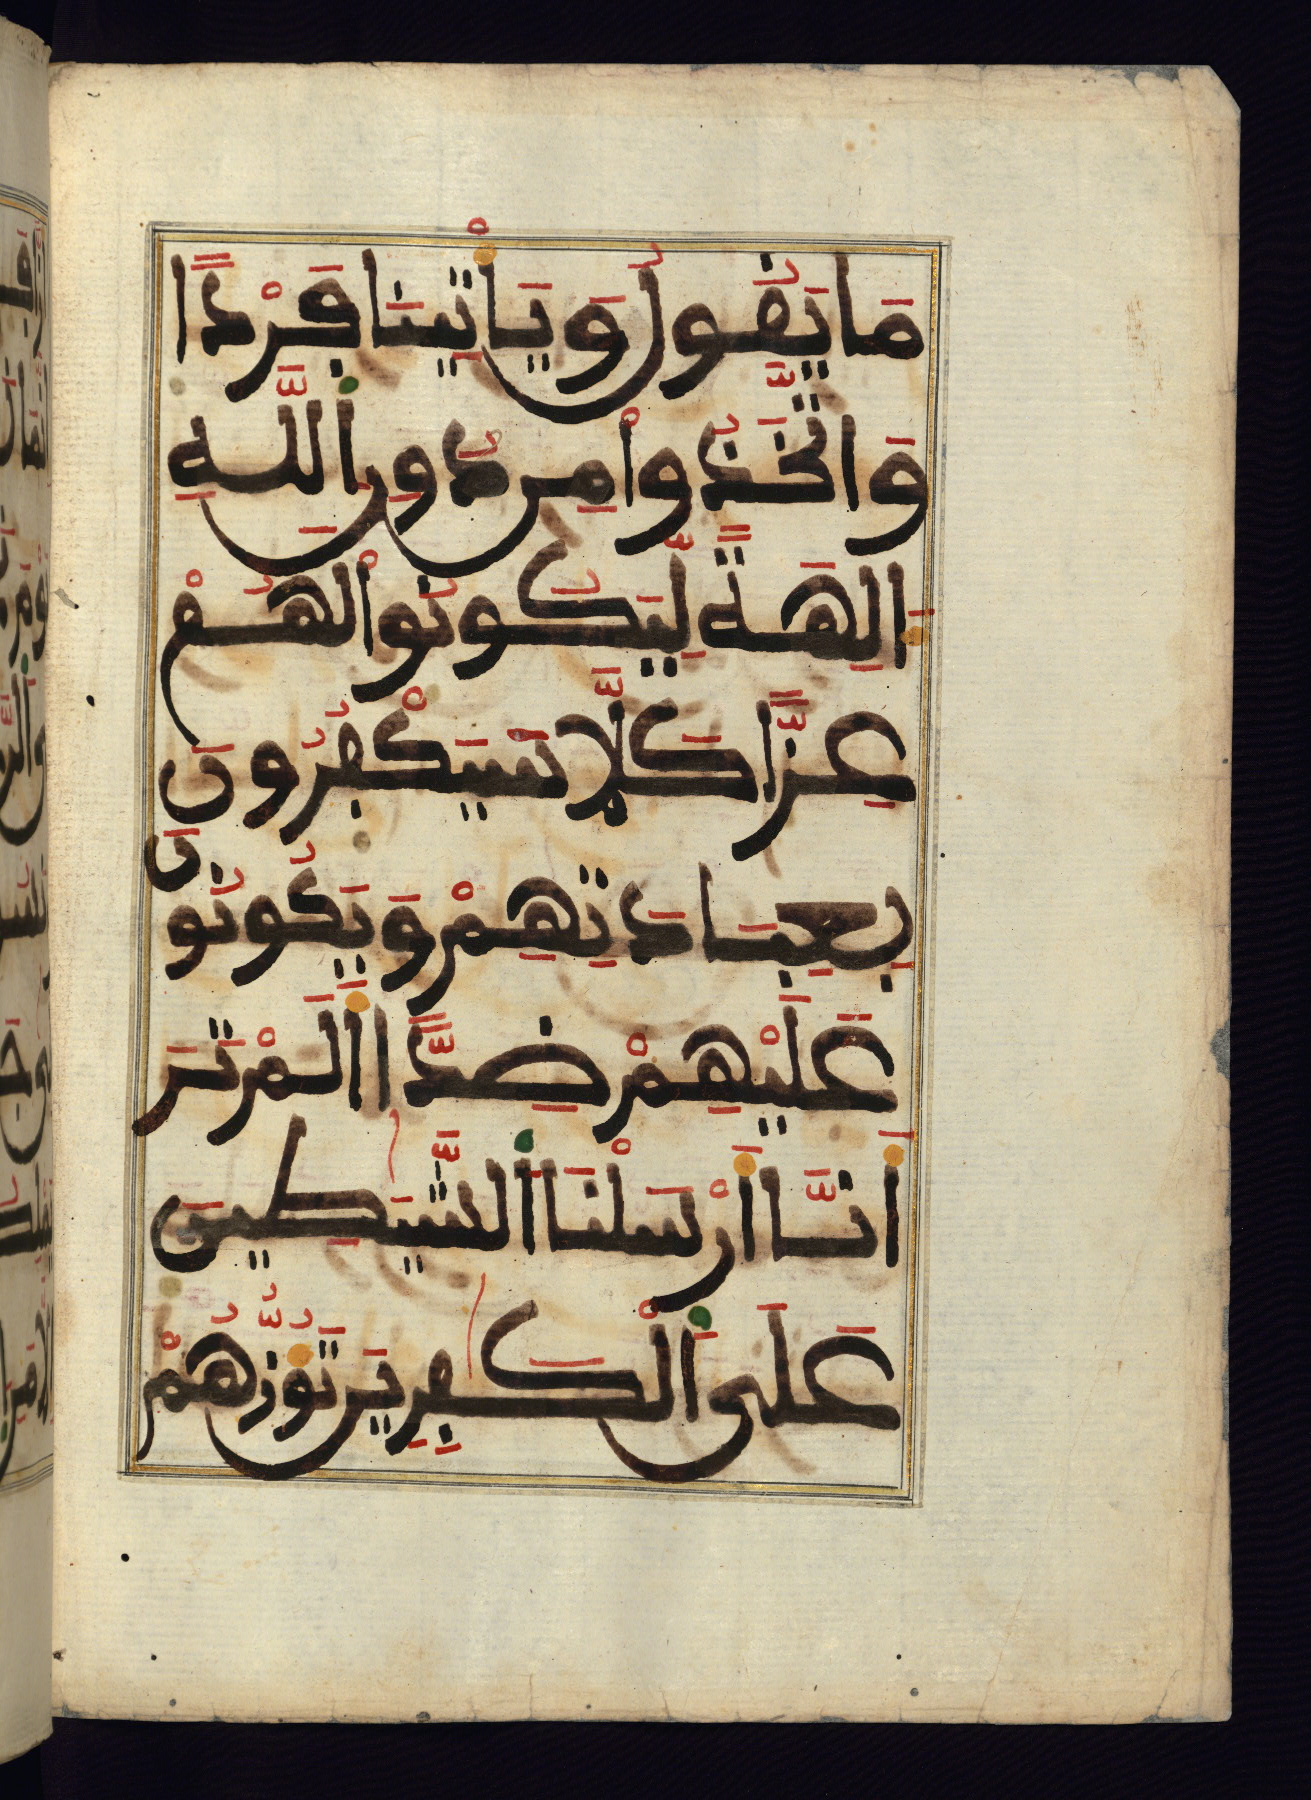 مَا يَقُولُ وَيَأْتِينَا فَرْدًا
وَاتَّخَذُوا مِن دُونِ اللَّهِ
الِهَةً لِّيَكُونُوا لَهُمْ
عِزًّا كَلَّا سَيَكْفُرُونَ
بِعِبَادَتِهِمْ وَيَكُونُونَ
عَلَيْهِمْ ضِدًّا اَلَمْ تَرَ
أَنَّا أَرْسَلْنَا الشَّيَطِينَ
عَلَى الْكَفِرِينَ تَؤُزُّهُمْ